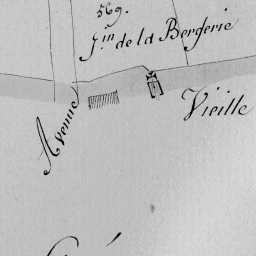 569.
J.in de la Bergerie
Vieille
Avenue